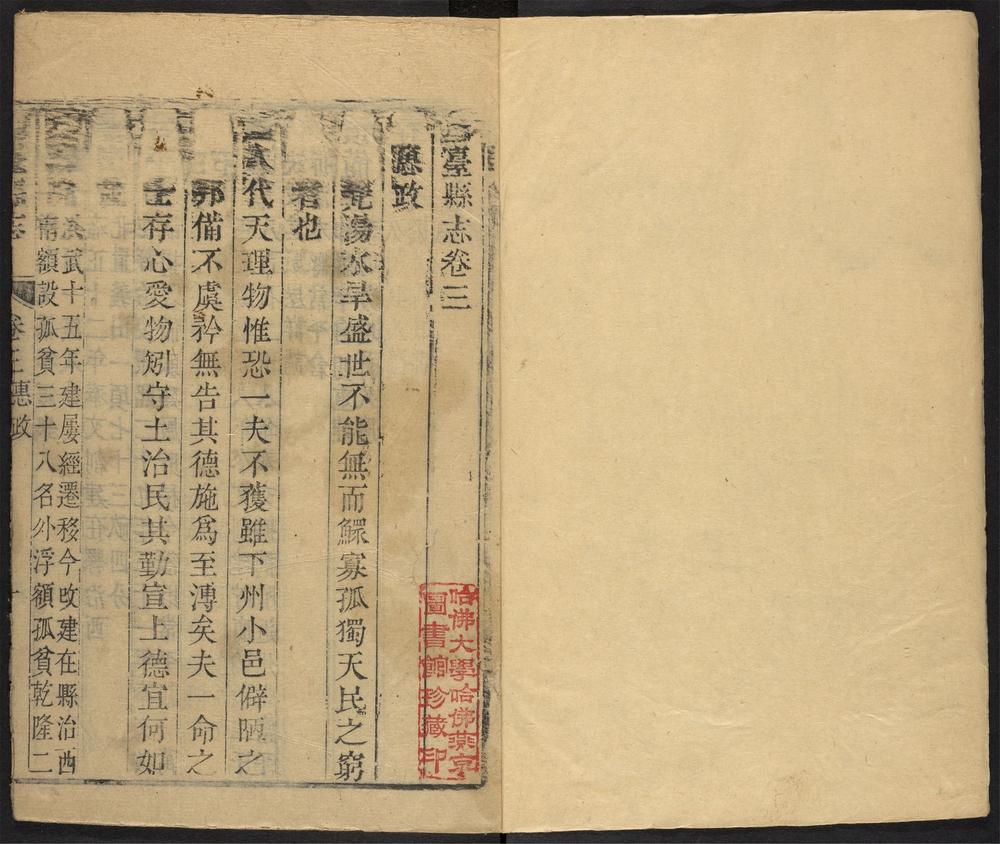 臺縣志卷三
惠政
堯湯水旱盛世不能無而鰥寡孤獨天民之窮
者也
代天理物惟恐一夫不獲雖下州小邑僻陋之
邦備不虞矜無告其德施爲至溥矣夫一命之
士存心愛物矧守土治民其勤宣上德宜何如
武十五年建屢經遷移今改建在縣治西
額設孤貧三十八名外浮額孤貧乾隆二
志
卷三惠政
哈佛大學哈佛燕京
圖書館珍藏印